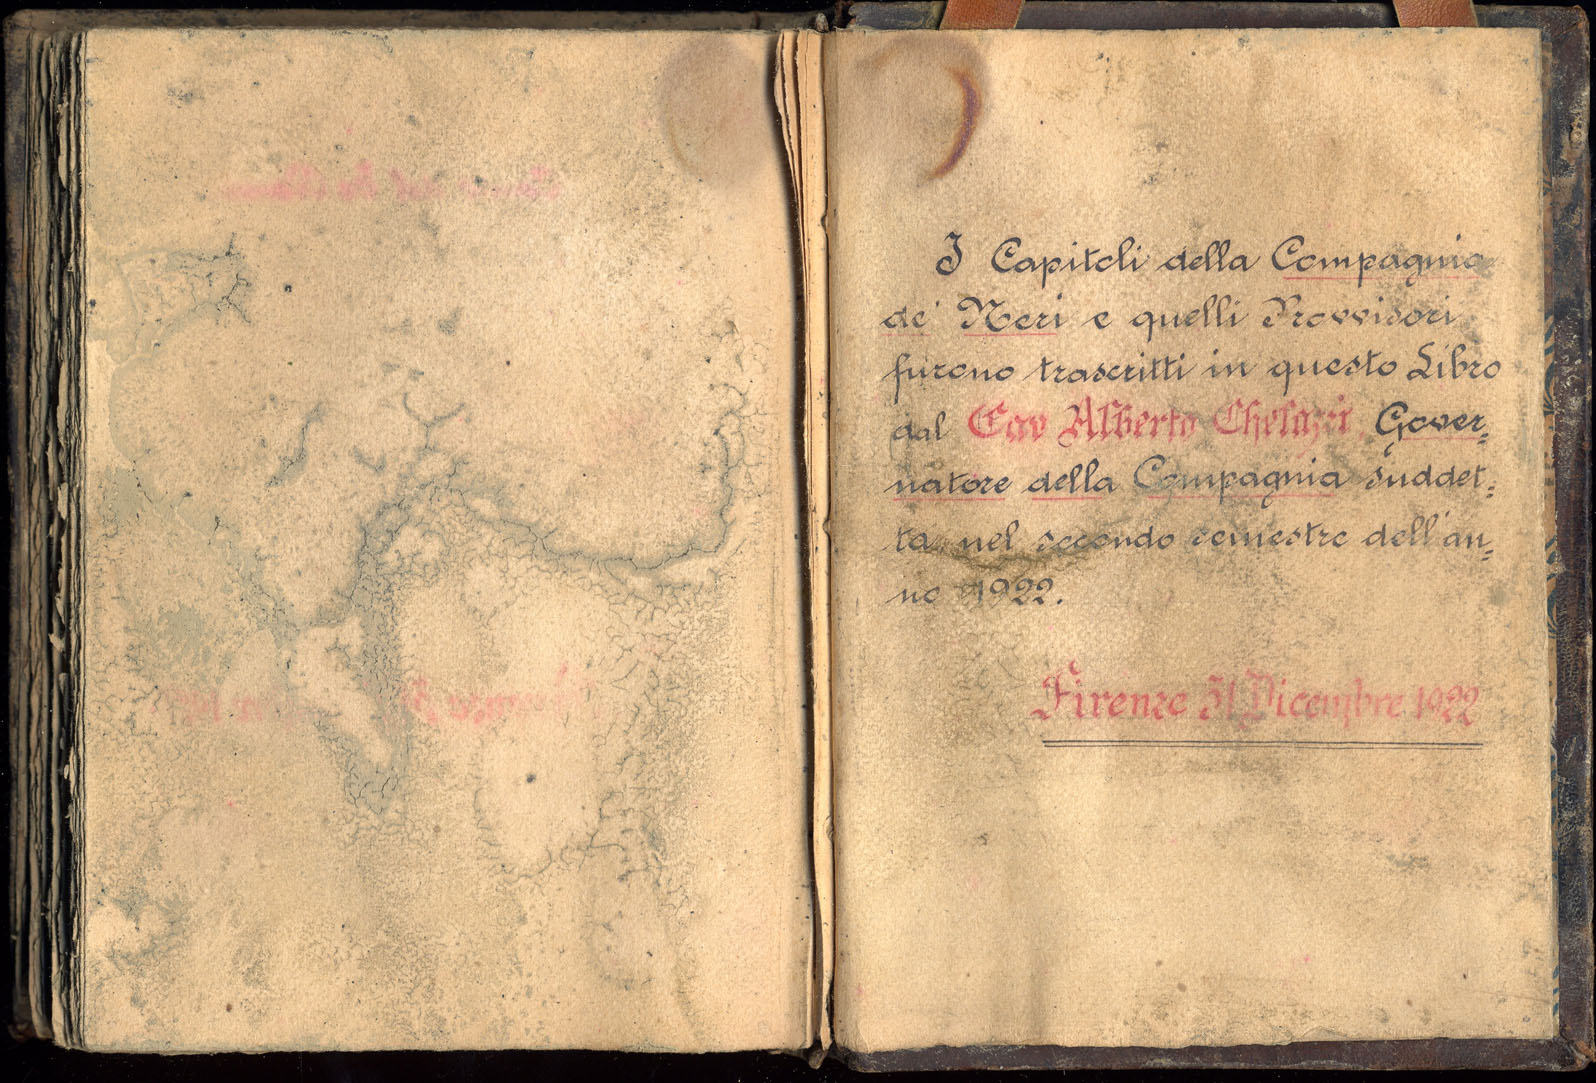 I Capitoli della Compagnia
de' Neri e quelli Provvisori
furono trascritti in questo Libro
dal Cav Alberto Chelazzi Gover=
natore della Compagnia suddet=
ta nel secondo semestre dell'an=
no 1922.
Firenze 31 Dicembre 1922